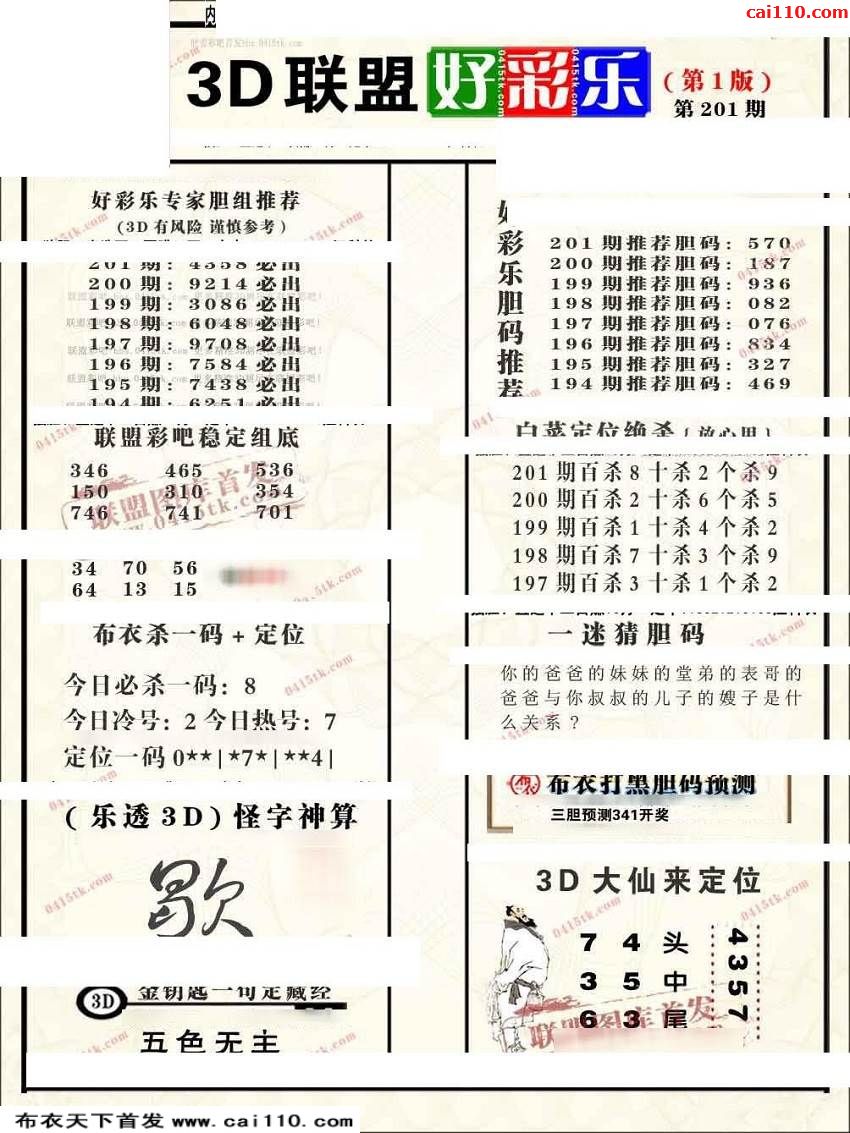 cai110.com
内
3D联盟好彩乐
(第1版)
第201期
好彩乐专家胆组推荐
(3D有风险 谨慎参考)
201期: 4358必出
200期: 9214必出
199期: 3086必出
198期: 6048必出
197期: 9708必出
196期: 7584必出
195期: 7438必出
194期: 6251必出
联盟彩吧稳定组底
346 465 536
150 310 354
746 741 701
34 70 56
64 13 15
布衣杀一码+定位
今日必杀一码: 8
今日冷号: 2 今日热号: 7
定位一码 0**|*7*|**4|
(乐透3D)怪字神算
歇
3D 金钥匙一句定藏经
五色无主
好彩乐胆码推荐
201期推荐胆码: 570
200期推荐胆码: 187
199期推荐胆码: 936
198期推荐胆码: 082
197期推荐胆码: 076
196期推荐胆码: 834
195期推荐胆码: 327
194期推荐胆码: 469
白菜定位绝杀{放心用}
201期百杀8十杀2个杀9
200期百杀2十杀6个杀5
199期百杀1十杀4个杀2
198期百杀7十杀3个杀9
197期百杀3十杀1个杀2
一迷猜胆码
你的爸爸的妹妹的堂弟的表哥的
爸爸与你叔叔的儿子的嫂子是什
么关系?
布衣打黑胆码预测
三胆预测341开奖
3D大仙来定位
7 4 头
3 5 中
6 3 尾
4357
联盟图库首发
联盟图库首发
www.0415tk.com
0415tk.com
布衣天下首发 www.cai110.com